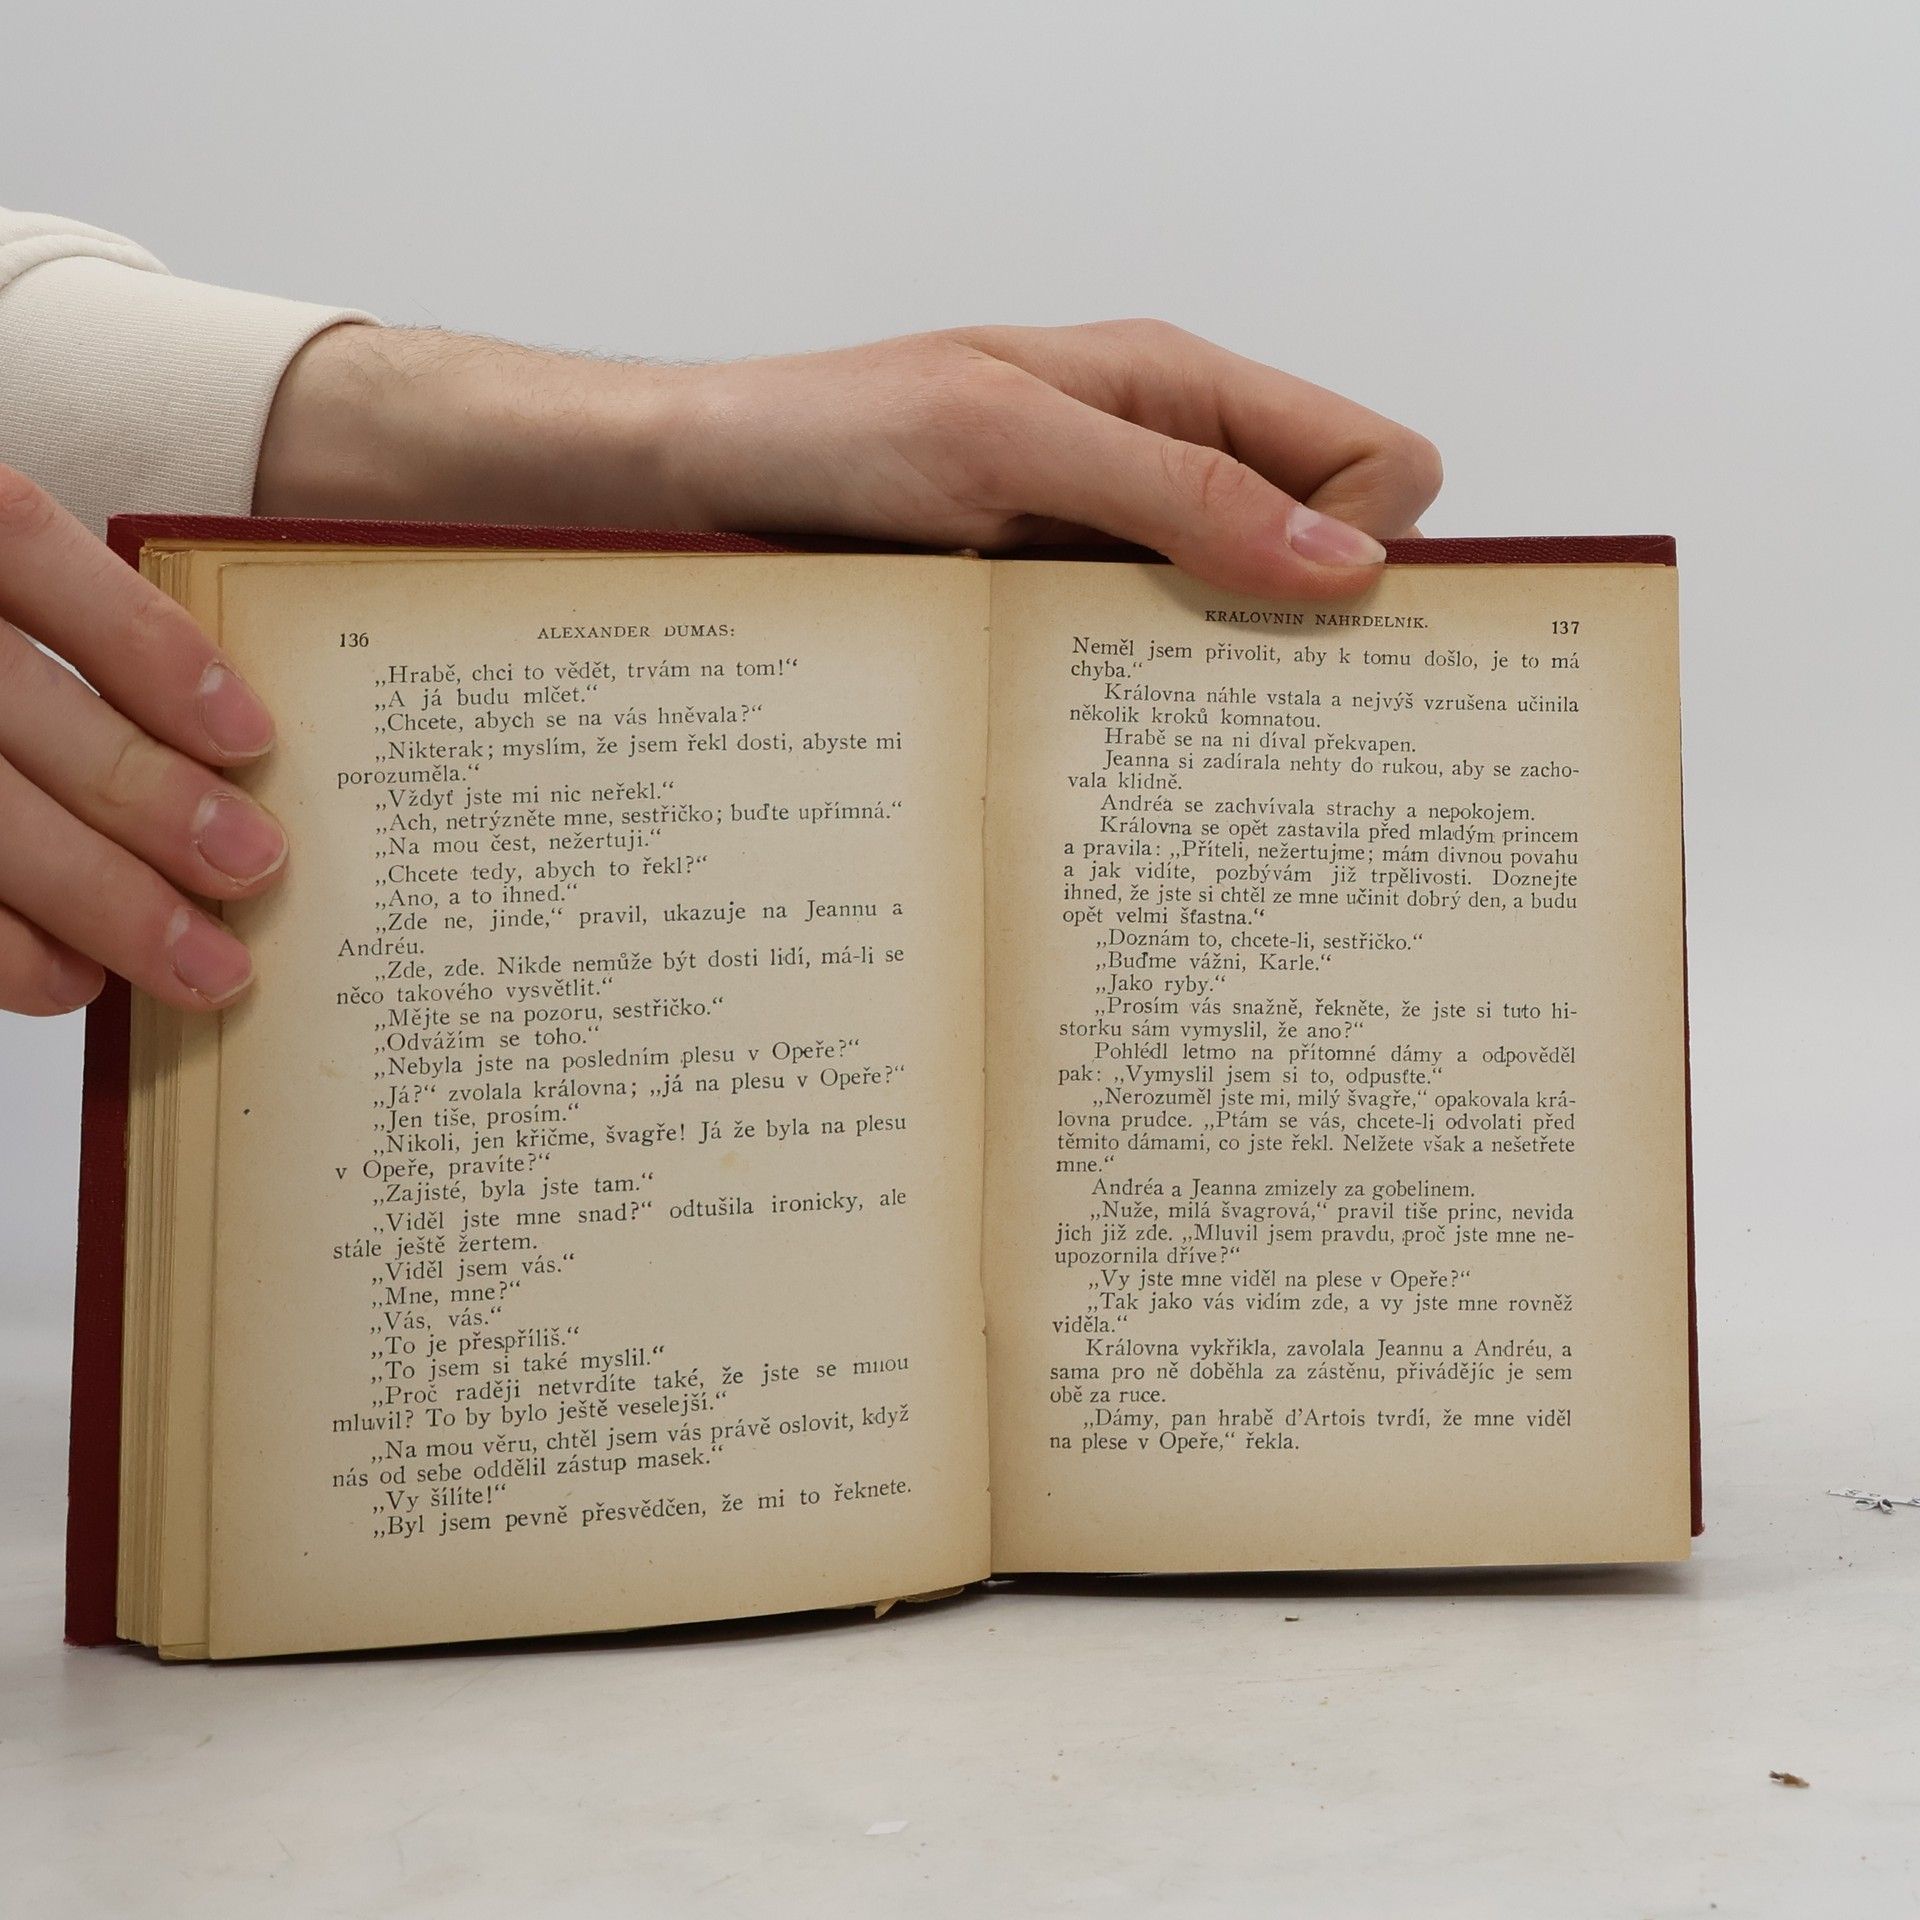 136
ALEXANDER DUMAS:
„Hrabě, chci to vědět, trvám na tom!“
„A já budu mlčet.“
„Chcete, abych se na vás hněvala?“
„Nikterak; myslím, že jsem řekl dosti, abyste mi
porozuměla.“
„Vždyť jste mi nic neřekl.“
„Ach, netrýzněte mne, sestřičko; buďte upřímná.“
„Na mou čest, nežertuji.“
„Chcete tedy, abych to řekl?“
„Ano, a to ihned.“
„Zde ne, jinde,“ pravil, ukazuje na Jeannu a
Andréu.
„Zde, zde. Nikde nemůže být dosti lidí, má-li se
něco takového vysvětlit.“
„Mějte se na pozoru, sestřičko.“
„Odvážím se toho.“
„Nebyla jste na posledním plesu v Opeře?“
„Já?“ zvolala královna; „já na plesu v Opeře?“
„Jen tiše, prosím.“
„Nikoli, jen křičme, švagře! Já že byla na plesu
v Opeře, pravíte?“
„Zajisté, byla jste tam.“
„Viděl jste mne snad?“ odtušila ironicky, ale
stále ještě žertem.
„Viděl jsem vás.“
„Mne, mne?“
„Vás, vás.“
„To je přespříliš.“
„To jsem si také myslil.“
„Proč raději netvrdíte také, že jste se mnou
mluvil? To by bylo ještě veselejší.“
„Na mou věru, chtěl jsem vás právě oslovit, když
nás od sebe oddělil zástup masek.“
„Vy šílíte!“
„Byl jsem pevně přesvědčen, že mi to řeknete.
KRALOVNIN NAHRDELNÍK.
137
Neměl jsem přivolit, aby k tomu došlo, je to má
chyba.“
Královna náhle vstala a nejvýš vzrušena učinila
několik kroků komnatou.
Hrabě se na ni díval překvapen.
Jeanna si zadírala nehty do rukou, aby se zacho-
vala klidně.
Andréa se zachvívala strachy a nepokojem.
Královna se opět zastavila před mladým princem
a pravila: „Příteli, nežertujme; mám divnou povahu
a jak vidíte, pozbývám již trpělivosti. Doznejte
ihned, že jste si chtěl ze mne učinit dobrý den, a budu
opět velmi šťastna.“
„Doznám to, chcete-li, sestřičko.“
„Buďme vážni, Karle.“
„Jako ryby.“
„Prosím vás snažně, řekněte, že jste si tuto hi-
storku sám vymyslil, že ano?“
Pohlédl letmo na přítomné dámy a odpověděl
pak: „Vymyslil jsem si to, odpusťte.“
„Nerozuměl jste mi, milý švagře,“ opakovala krá-
lovna prudce. „Ptám se vás, chcete-li odvolati před
těmito dámami, co jste řekl. Nelžete však a nešetřete
mne.“
Andréa a Jeanna zmizely za gobelinem.
„Nuže, milá švagrová,“ pravil tiše princ, nevida
jich již zde. „Mluvil jsem pravdu, proč jste mne ne-
upozornila dříve?“
„Vy jste mne viděl na plese v Opeře?“
„Tak jako vás vidím zde, a vy jste mne rovněž
viděla.“
Královna vykřikla, zavolala Jeannu a Andréu, a
sama pro ně doběhla za zástěnu, přivádějíc je sem
obě za ruce.
„Dámy, pan hrabě d'Artois tvrdí, že mne viděl
na plese v Opeře,“ řekla.